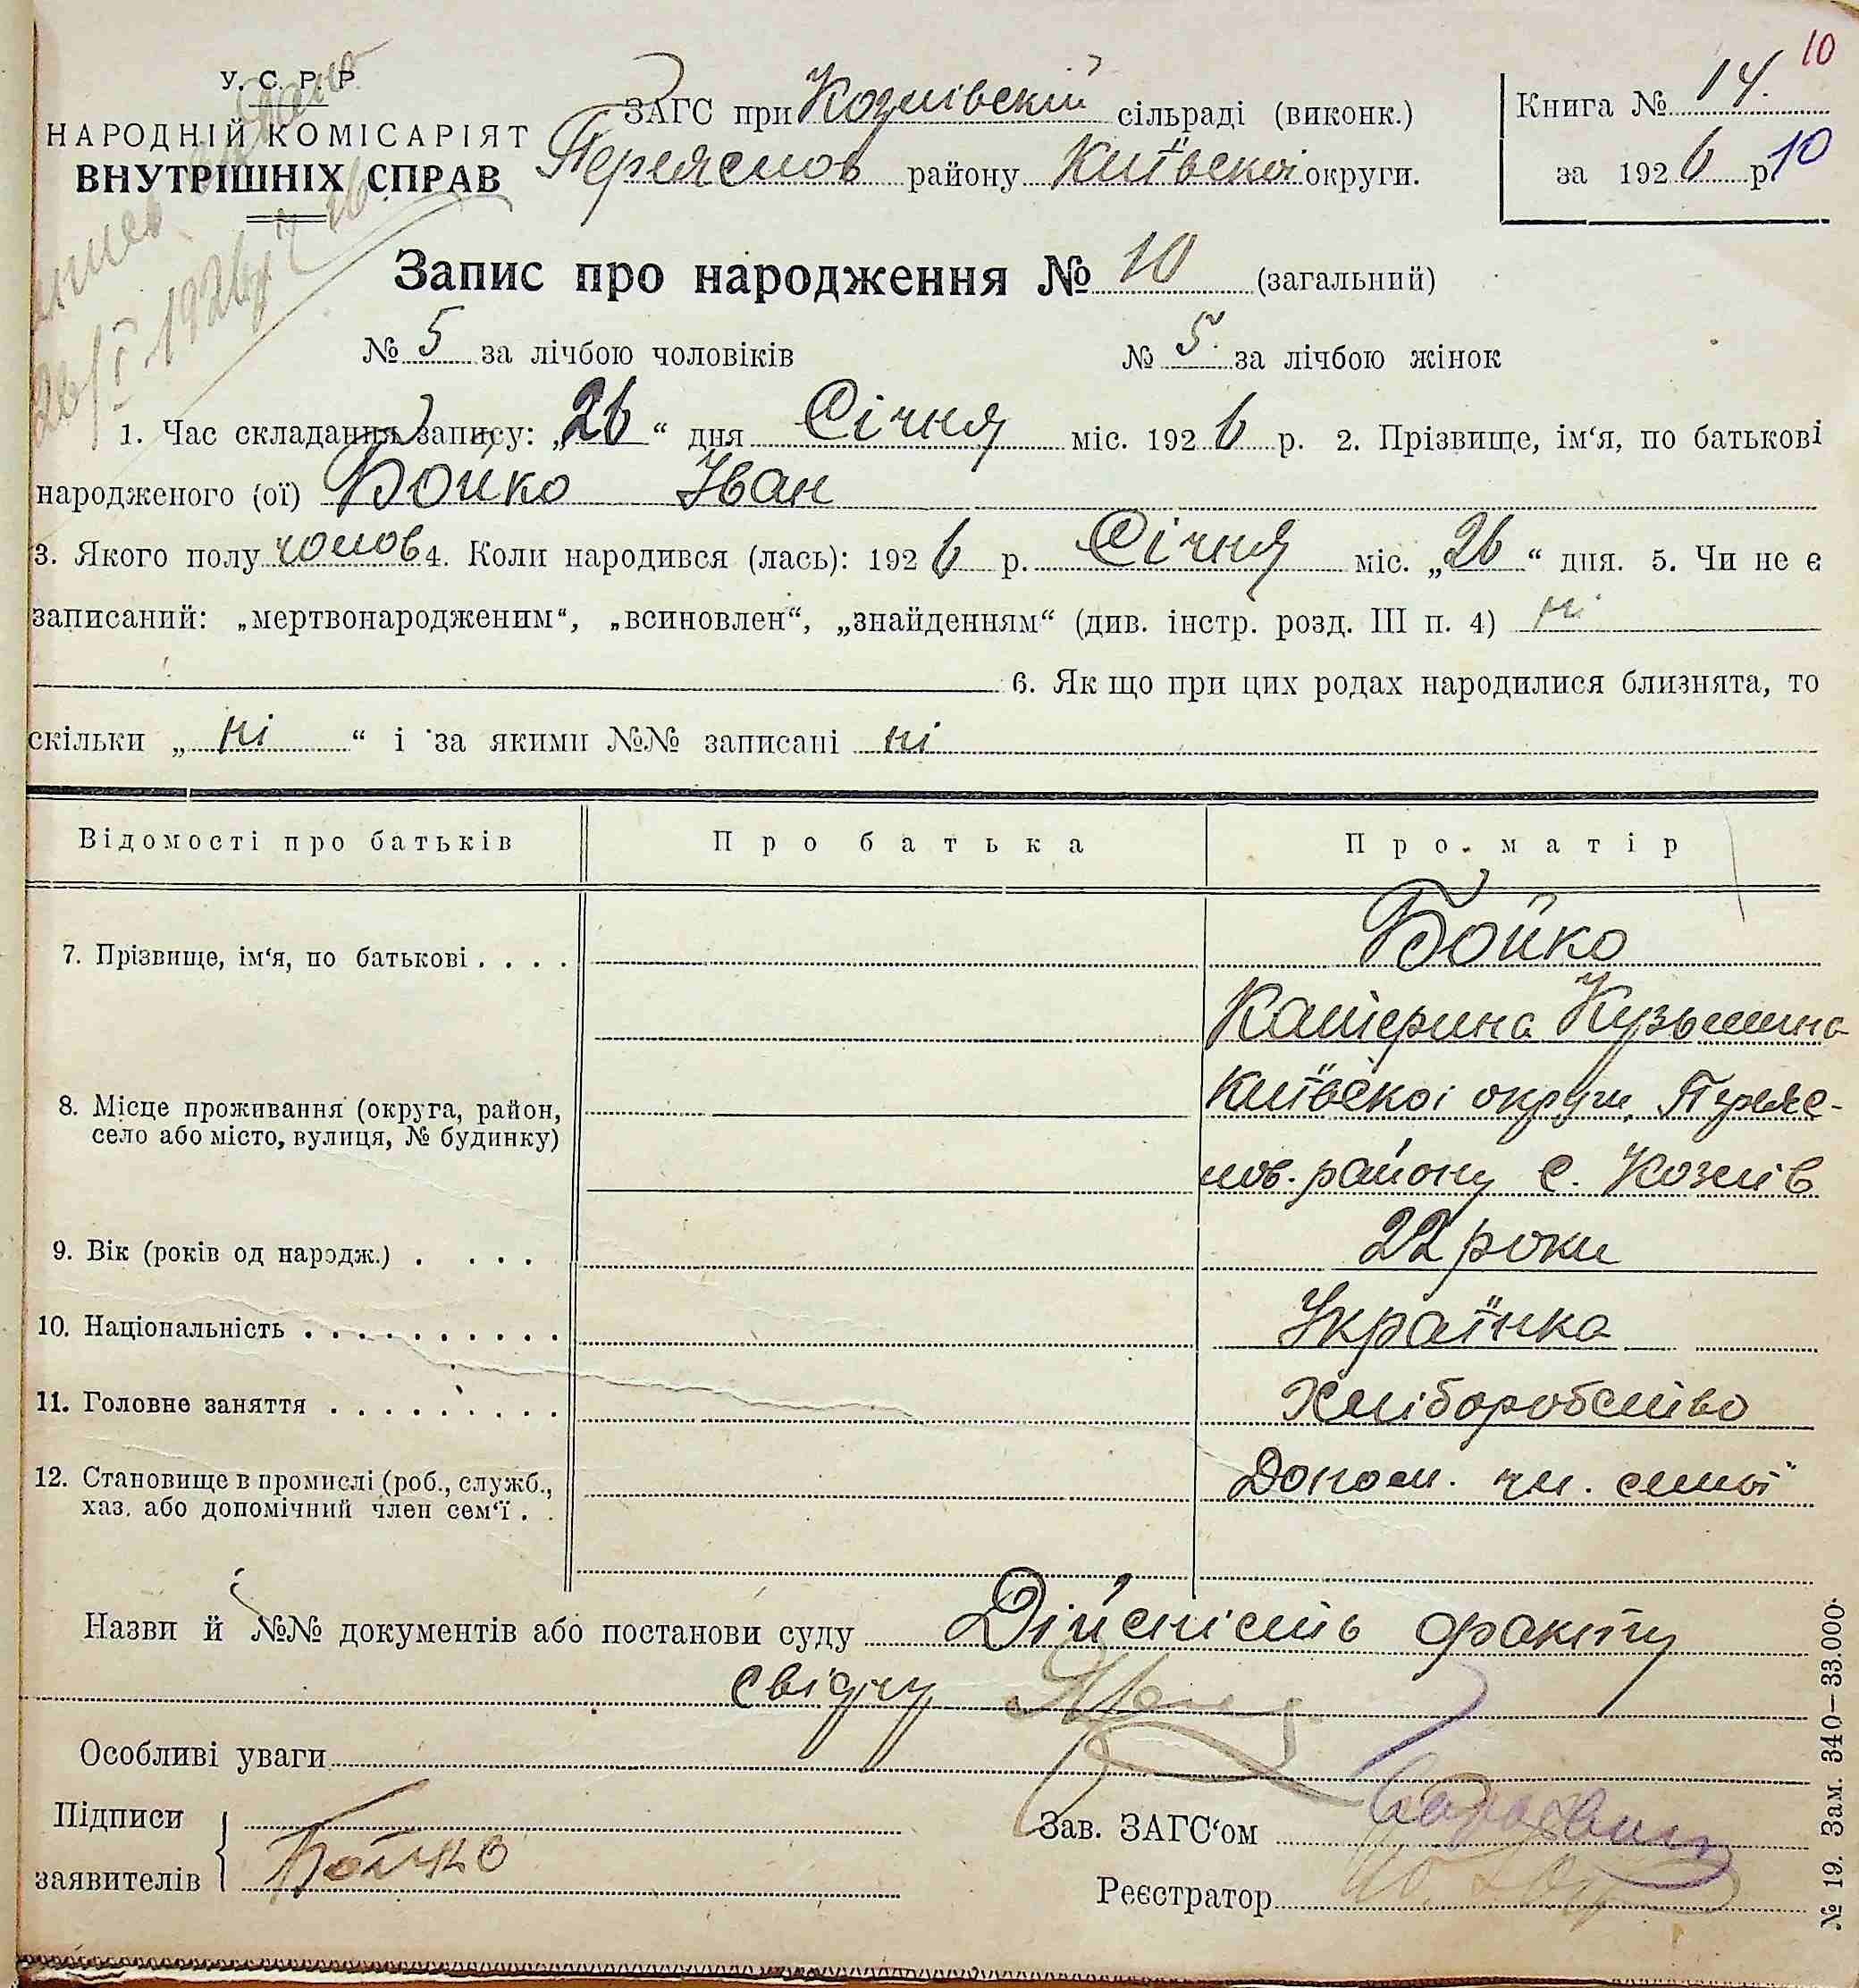 10
У. С. Р. Р.
НАРОДНІЙ КОМІСАРІЯТ
ВНУТРІШНІХ СПРАВ
ЗАГС при Козлівскій сільраді (виконк.)
Переяслов району Київської округи.
Книга № 14.
за 1926 р. 10
26/I 1926 р
Запис про народження № 10 (загальний)
№ 5 за лічбою чоловіків № 5. за лічбою жінок
1. Час складання запису: „26“ дня Січня міс. 1926 р. 2. Прізвище, ім‘я, по батькові
народженого (ої) Бойко Іван
3. Якого полу чолов 4. Коли народився (лась): 1926 р. Січня міс. „26“ дня. 5. Чи не є
записаний: „мертвонародженим“, „всиновлен“, „знайденням“ (див. інстр. розд. III п. 4) ні
6. Як що при цих родах народилися близнята, то
скільки „ ні “ і за якими №№ записані ні
Відомості про батьків Про батька Про матір
7. Прізвище, ім‘я, по батькові . . . . Бойко
Катерина Кузьмина
8. Місце проживання (округа, район, село або місто, вулиця, № будинку) Київської округи, Переяс-
лов. району с. Козлів
9. Вік (років од народж.) . . . . 22 роки
10. Національність . . . . . . . . . . Українка
11. Головне заняття . . . . . . . . . Хліборобство
12. Становище в промислі (роб., служб., Допом. чл. смьї
хаз. або допомічний член сем‘ї . .
Назви й №№ документів або постанови суду Дійсність факту
свідчу
Особливі уваги
Підписи
заявителів Бойко
Зав. ЗАГС‘ом
Реєстратор
№ 19. Зам. 340—33.000.